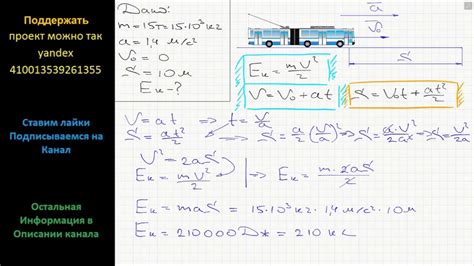 Поддержать
проект можно так
yandex
410013539261355
Ставим лайки
Подписываемся на
Канал
Остальная
Информация в
Описании канала
Дано:
m = 15т = 15·10³ кг
a = 1,4 м/с²
V₀ = 0
S = 10 м
Eк - ?
a
V₀
S
Eк = mV²/2
V = V₀ + at
S = V₀t + at²/2
V = at => t = V/a
S = at²/2 => S = a/2 (V/a)² => S = a·V²/2a² => S = V²/2a
V² = 2aS
Eк = mV²/2 => Eк = m·2aS/2
Eк = maS = 15·10³ кг · 1,4 м/с² · 10 м
Eк = 210000 Дж = 210 кДж